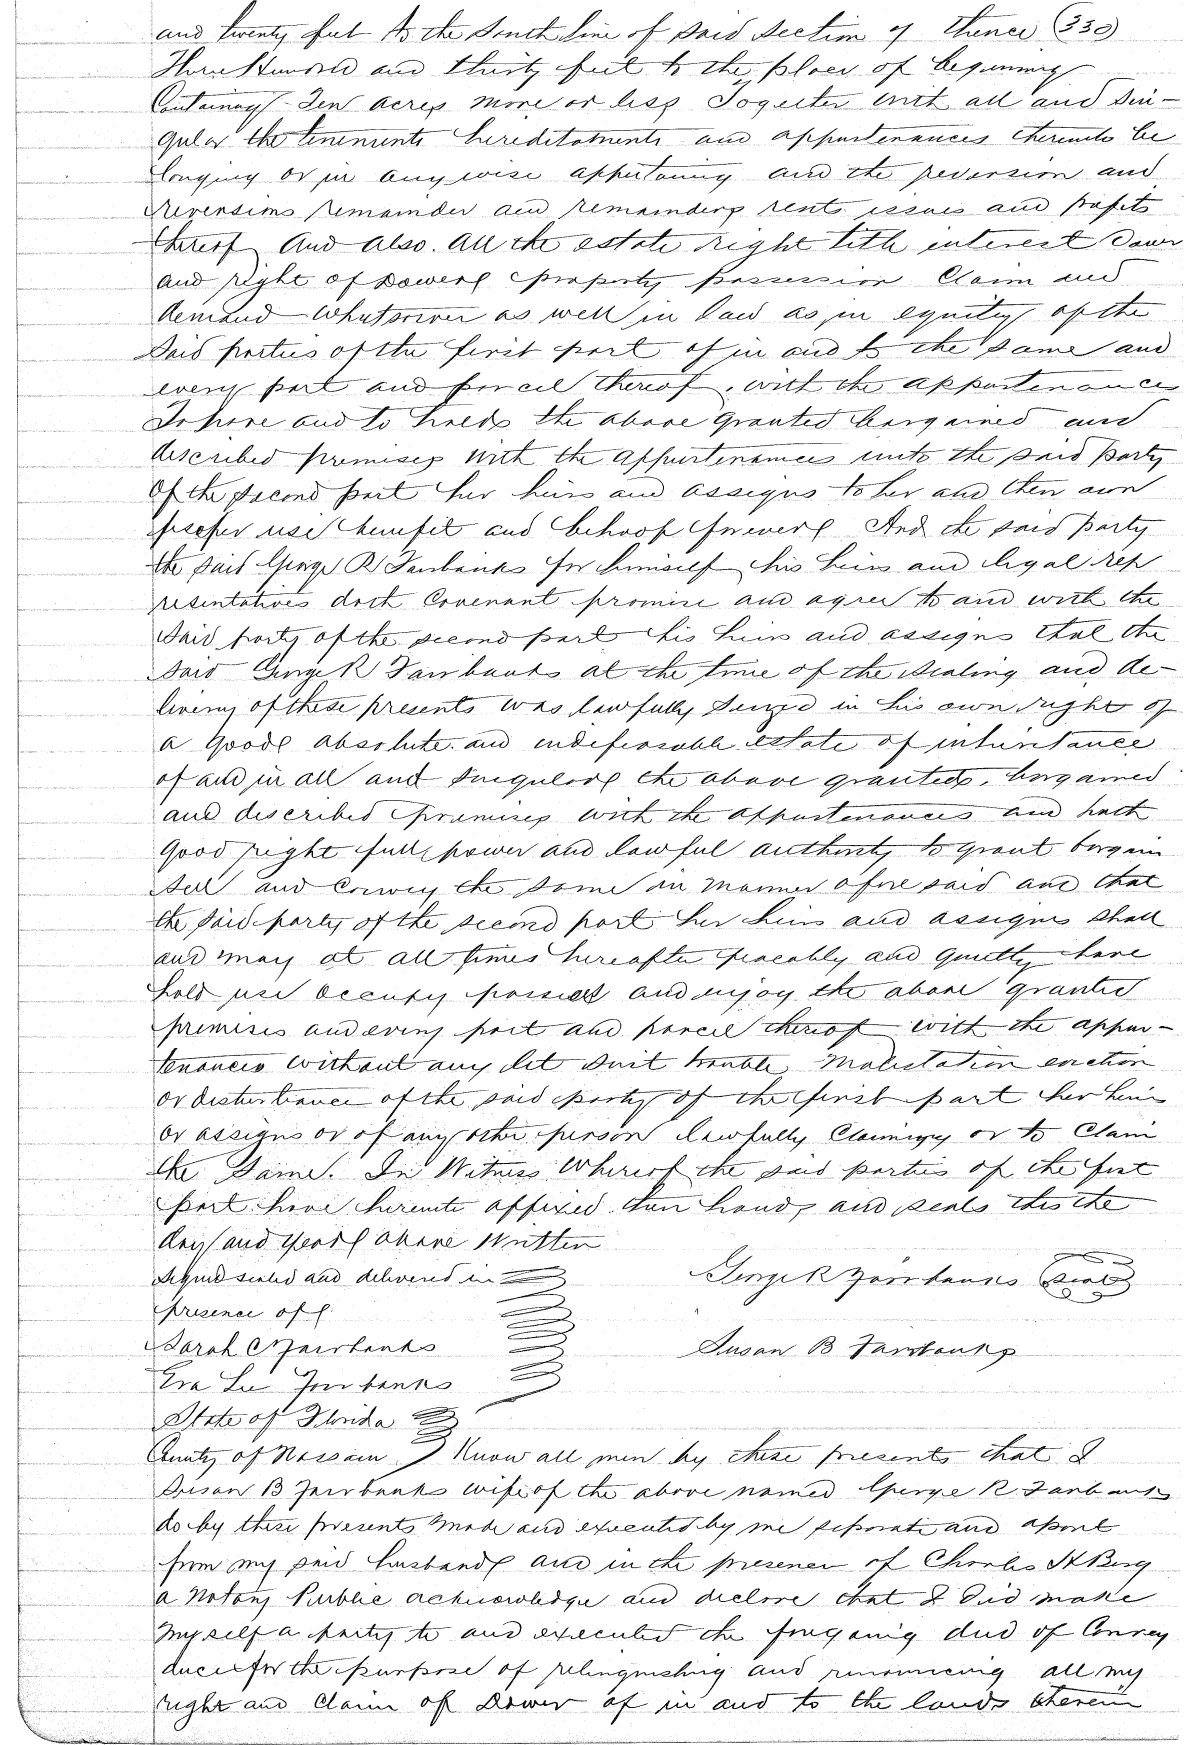 and twenty feet to the South line of said Section 9 thence (330)
Three Hundred and thirty feet to the place of beginning
Containing Ten acres more or less Together with all and Sin-
gular the tenements hereditaments and appurtenances thereunto be
longing or in any wise appertaining and the reversion and
reversions remainder and remainders rents issues and profits
thereof And also all the estate right title interest Dower
and right of Dower property possession Claim and
demand whatsoever as well in law as in equity of the
Said parties of the first part of in and to the same and
every part and parcel thereof with the appurtenances
To have and to hold the above granted bargained and
described premises with the appurtenances unto the said party
of the second part her heirs and assigns to her and their own
proper use benefit and behoof forever And the said party
the said George R Fairbanks for himself his heirs and legal rep
resentatives doth Covenant promise and agree to and with the
Said party of the second part his heirs and assigns that the
Said George R Fairbanks at the time of the sealing and de-
livery of these presents was lawfully Seized in his own right of
a good absolute and indefeasable estate of inheritance
of and in all and singular the above granted bargained
and described premises with the appurtenances and hath
Good right full power and lawful authority to grant bargain
Sell and Convey the same in manner afore said and that
the said party of the second part her heirs and assigns shall
and may at all times hereafter peaceably and quietly have
hold use occupy possess and enjoy the above granted
premises and every part and parcel thereof with the appur-
tenances without any let suit trouble molestation eviction
or disturbance of the said party of the first part her heirs
or assigns or of any other person lawfully Claiming or to Claim
the Same. In Witness Whereof the said parties of the first
part have hereunto affixed their hands and seals this the
day and year above Written
Signed sealed and delivered in George R Fairbanks Seal
presence of
Sarah C Fairbanks Susan B Fairbanks
Eva Lee Fairbanks
State of Florida
County of Nassau Know all men by these presents that I
Susan B Fairbanks wife of the above named George R Fairbanks
do by these presents made and executed by me separate and apart
from my said husband and in the presence of Charles H Berg
a Notary Public acknowledge and declare that I did make
myself a party to and executed the foregoing deed of Convey
ance for the purpose of relinquishing and renouncing all my
right and Claim of Dower of in and to the lands therein